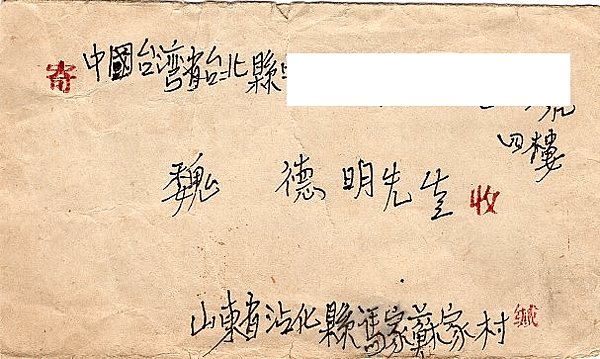 寄 中國台湾省台北縣
號
四樓
魏 德明先生 收
山東省沾化縣馮家蘇家村 缄